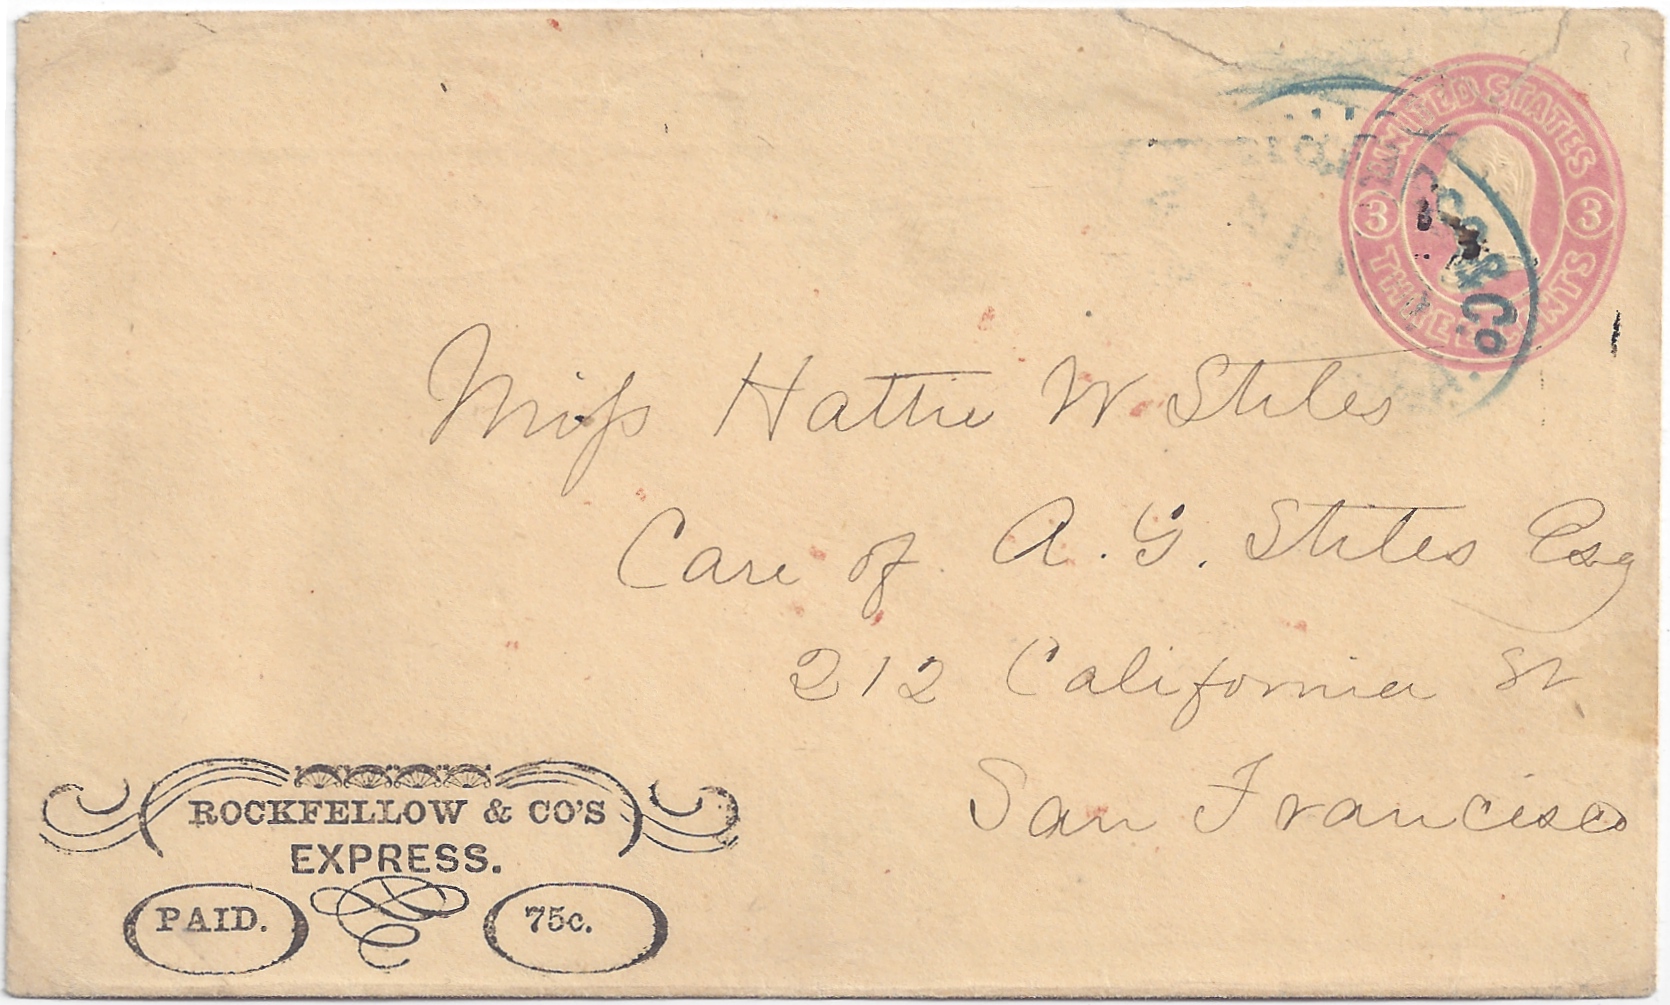 UNITED STATES
3 3
THREE CENTS
& Co
Miss Hattie W Stiles
Care of A. G. Stiles Esq
212 California St
San Francisco
ROCKFELLOW & CO'S
EXPRESS.
PAID. 75c.